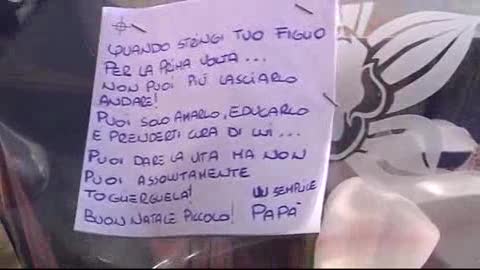 QUANDO STRINGI TUO FIGLIO
PER LA PRIMA VOLTA...
NON PUOI PIÙ LASCIARLO
ANDARE!
PUOI SOLO AMARLO, EDUCARLO
E PRENDERTI CURA DI LUI...
PUOI DARE LA VITA MA NON
PUOI ASSOLUTAMENTE
TOGLIERGLIELA!
BUON NATALE PICCOLO!
UN SEMPLICE
PAPÀ